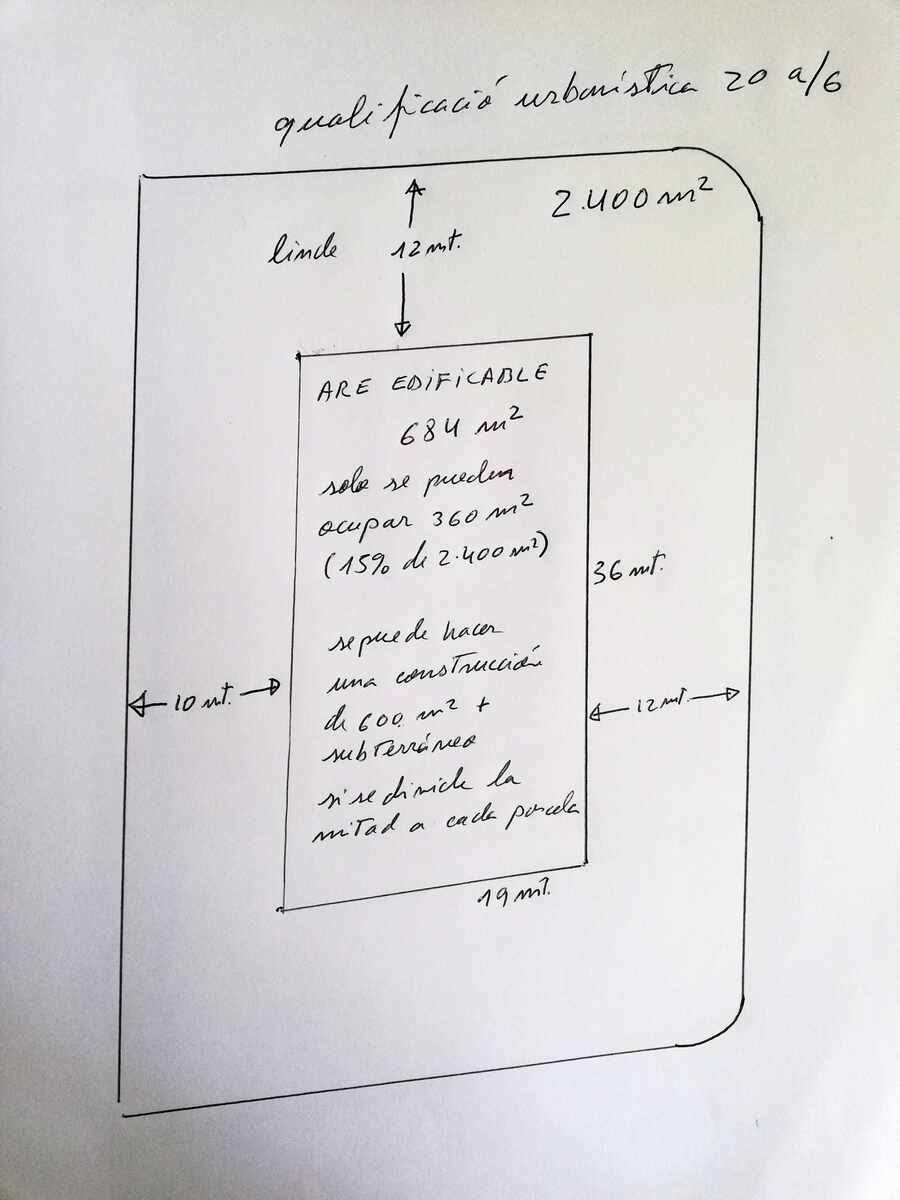 qualificació urbanística 20 a/6
2.400 m²
linde 12 mt.
ARE EDIFICABLE
684 m²
solo se pueden
ocupar 360 m²
(15% de 2.400 m²)
36 mt.
se puede hacer
una construcción
de 600 m² +
subterráneo
10 mt.
12 mt.
si se divide la
mitad a cada parcela
19 mt.